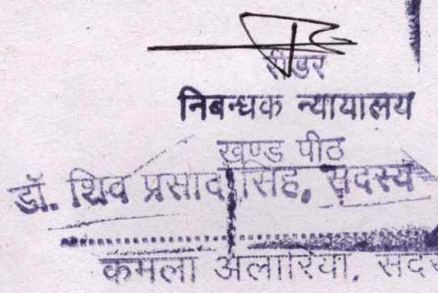 रीडर
निबन्धक न्यायालय
खण्ड पीठ
डॉ. शिव प्रसाद सिंह, सदस्य
कमला अलारिया, सदस